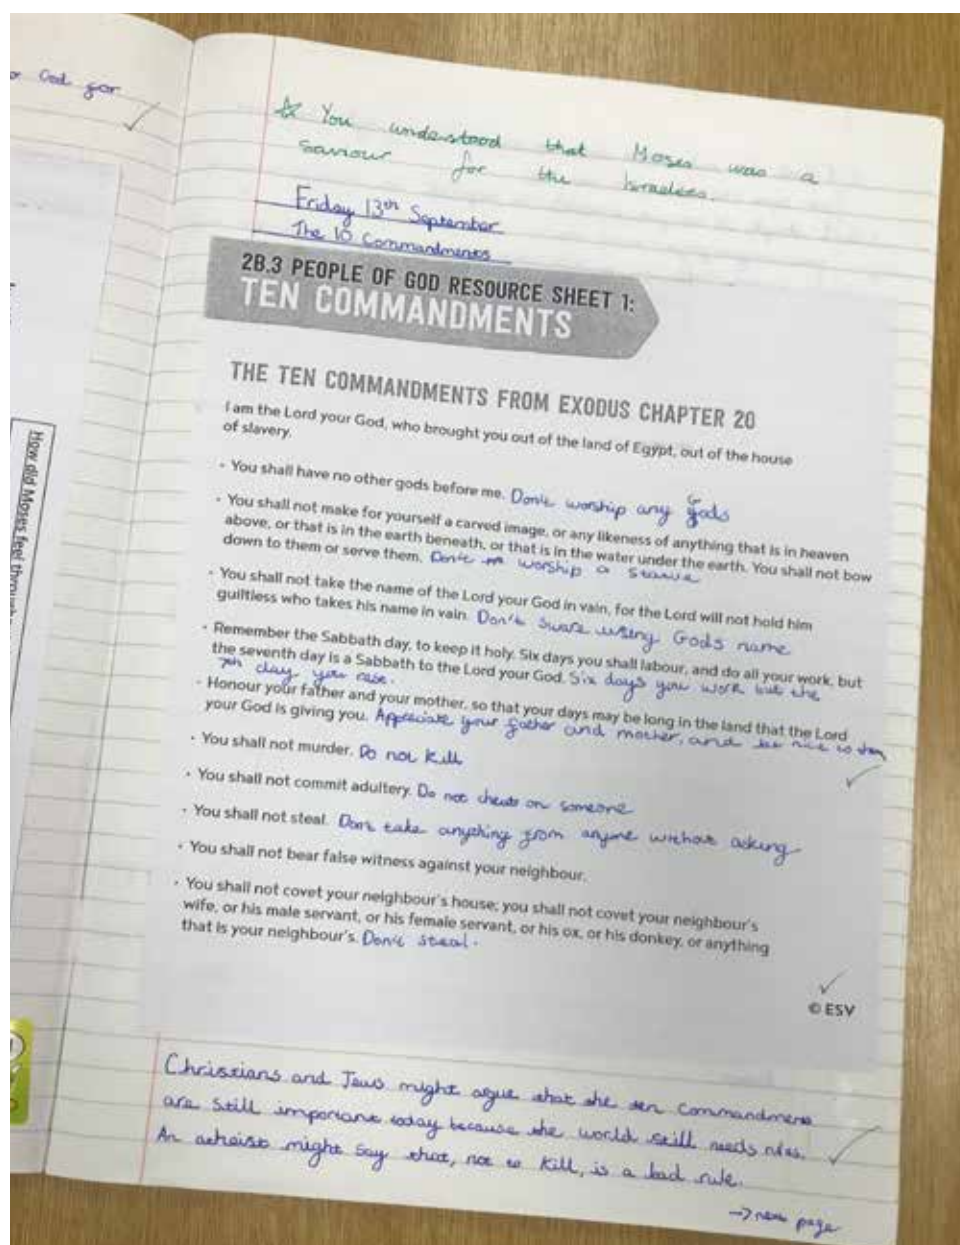 God for
☆ You understood that Moses was a
saviour for the Israelites.
Friday 13th September
The 10 Commandments
2B.3 PEOPLE OF GOD RESOURCE SHEET 1:
TEN COMMANDMENTS
THE TEN COMMANDMENTS FROM EXODUS CHAPTER 20
I am the Lord your God, who brought you out of the land of Egypt, out of the house
of slavery.
• You shall have no other gods before me. Don't worship any Gods
• You shall not make for yourself a carved image, or any likeness of anything that is in heaven
above, or that is in the earth beneath, or that is in the water under the earth. You shall not bow
down to them or serve them. Don't worship a statue
• You shall not take the name of the Lord your God in vain, for the Lord will not hold him
guiltless who takes his name in vain. Don't sware using Gods name
• Remember the Sabbath day, to keep it holy. Six days you shall labour, and do all your work, but
the seventh day is a Sabbath to the Lord your God. Six days you work but the
7th day you rest.
• Honour your father and your mother, so that your days may be long in the land that the Lord
your God is giving you. Appreciate your father and mother, and be nice to them
• You shall not murder. Do not kill
• You shall not commit adultery. Do not cheat on someone
• You shall not steal. Don't take anything from anyone without asking
• You shall not bear false witness against your neighbour.
• You shall not covet your neighbour's house; you shall not covet your neighbour's
wife, or his male servant, or his female servant, or his ox, or his donkey, or anything
that is your neighbour's. Don't steal.
© ESV
Christians and Jews might argue that the ten commandments
are still important today because the world still needs rules.
An atheist might say that, not to kill, is a bad rule.
→ new page
How did Moses feel